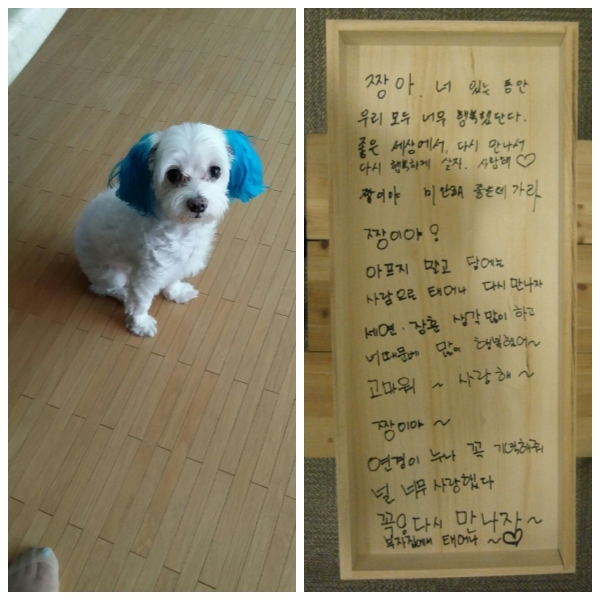 짱아. 너 있는 동안
우리 모두 너무 행복했단다.
좋은 세상에서, 다시 만나서
다시 행복하게 살자. 사랑해♡
짱이야 미안해 좋은데 가라
짱이야?
아프지 말고 담에는
사람으로 태어나 다시 만나자
세연·장환 생각 많이 하고
너때문에 많이 행복했어~
고마워 ~ 사랑해 ~
짱이야 ~
연경이 누나 꼭 기억해줘
널 너무 사랑했다
꼭 다시 만나자~
부자집에 태어나 ~♡